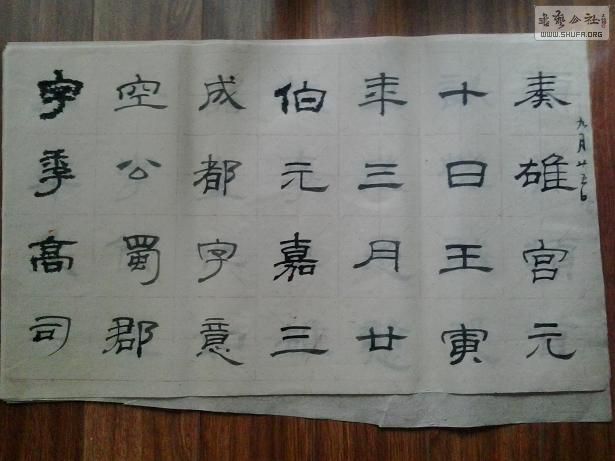 奏雄宫元
九月廿五日
十日王寅
年三月廿
伯元嘉三
成都字意
空公蜀郡
字季高司
書藝公社
WWW.SHUFA.ORG